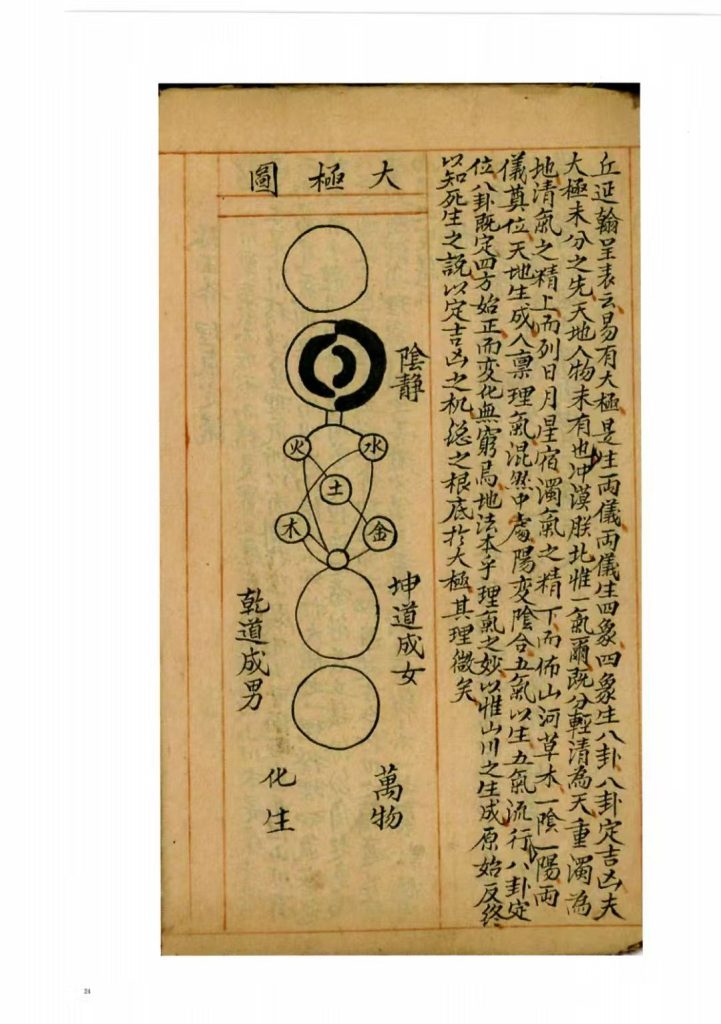 丘延翰呈表云易有大極是生兩儀兩儀生四象四象生八卦八卦定吉凶夫
大極未分之先天地人物未有也冲漠朕北惟一氣爾既分輕清為天重濁為
地清氣之精上而列日月星宿濁氣之精下而佈山河草木一陰一陽兩
儀奠位天地生成人禀理氣混然中處陽変陰合五氣以生五氣流行八卦定
位八卦既定四方始正而変化無窮焉地法本乎理氣之妙以惟山川之生成原始反終
以知死生之説以定吉凶之机總之根底扵大極其理微矣
大極圖
陰靜
火
水
土
木
金
坤道成女
乾道成男
萬物
化生
24